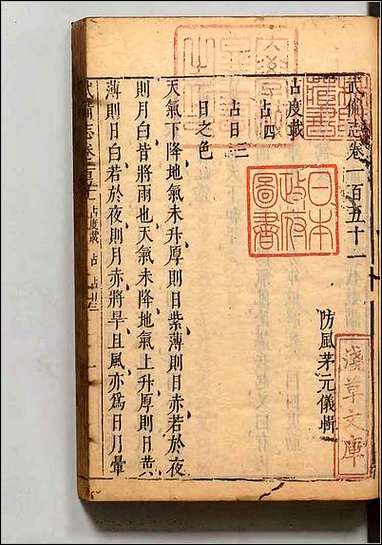 武備志卷一百五十一
防風茅元儀輯
占度載
占四
占日三
日之色
天氣下降地氣未升厚則日紫薄則日赤若於夜
則月白皆將雨也天氣未降地氣上升厚則日黃
薄則日白若於夜則月赤將旱且風亦為日月暈
武備志卷一百五十一
占度載
占
占日三
一
日本
政府
圖書
淺草文庫